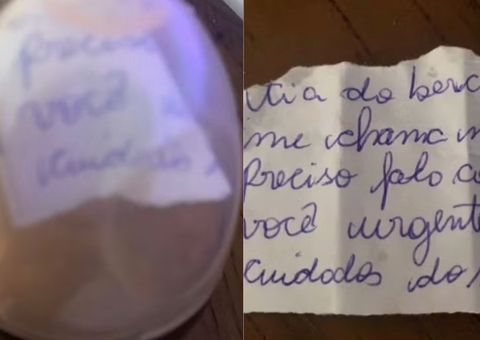 preciso
você
cuidados
tia do berç
me chama
Preciso falo c
você urgente
cuidados do